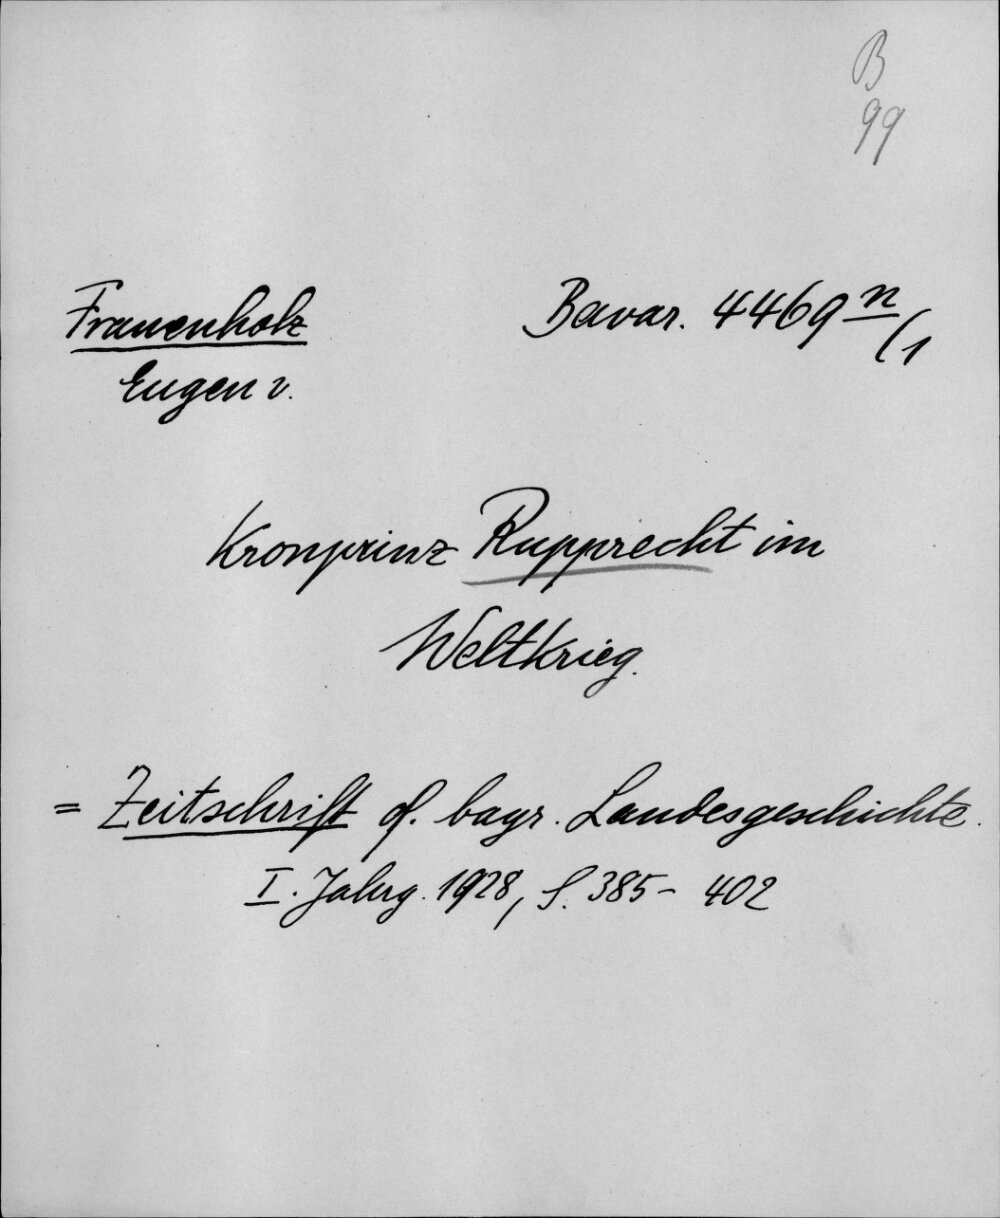 B
99
Frauenholz
Bavar. 4469 n/1
Eugen v.
Kronprinz Rupprecht im
Weltkrieg.
= Zeitschrift f. bayr. Landesgeschichte.
I. Jahrg. 1928, S. 385 - 402